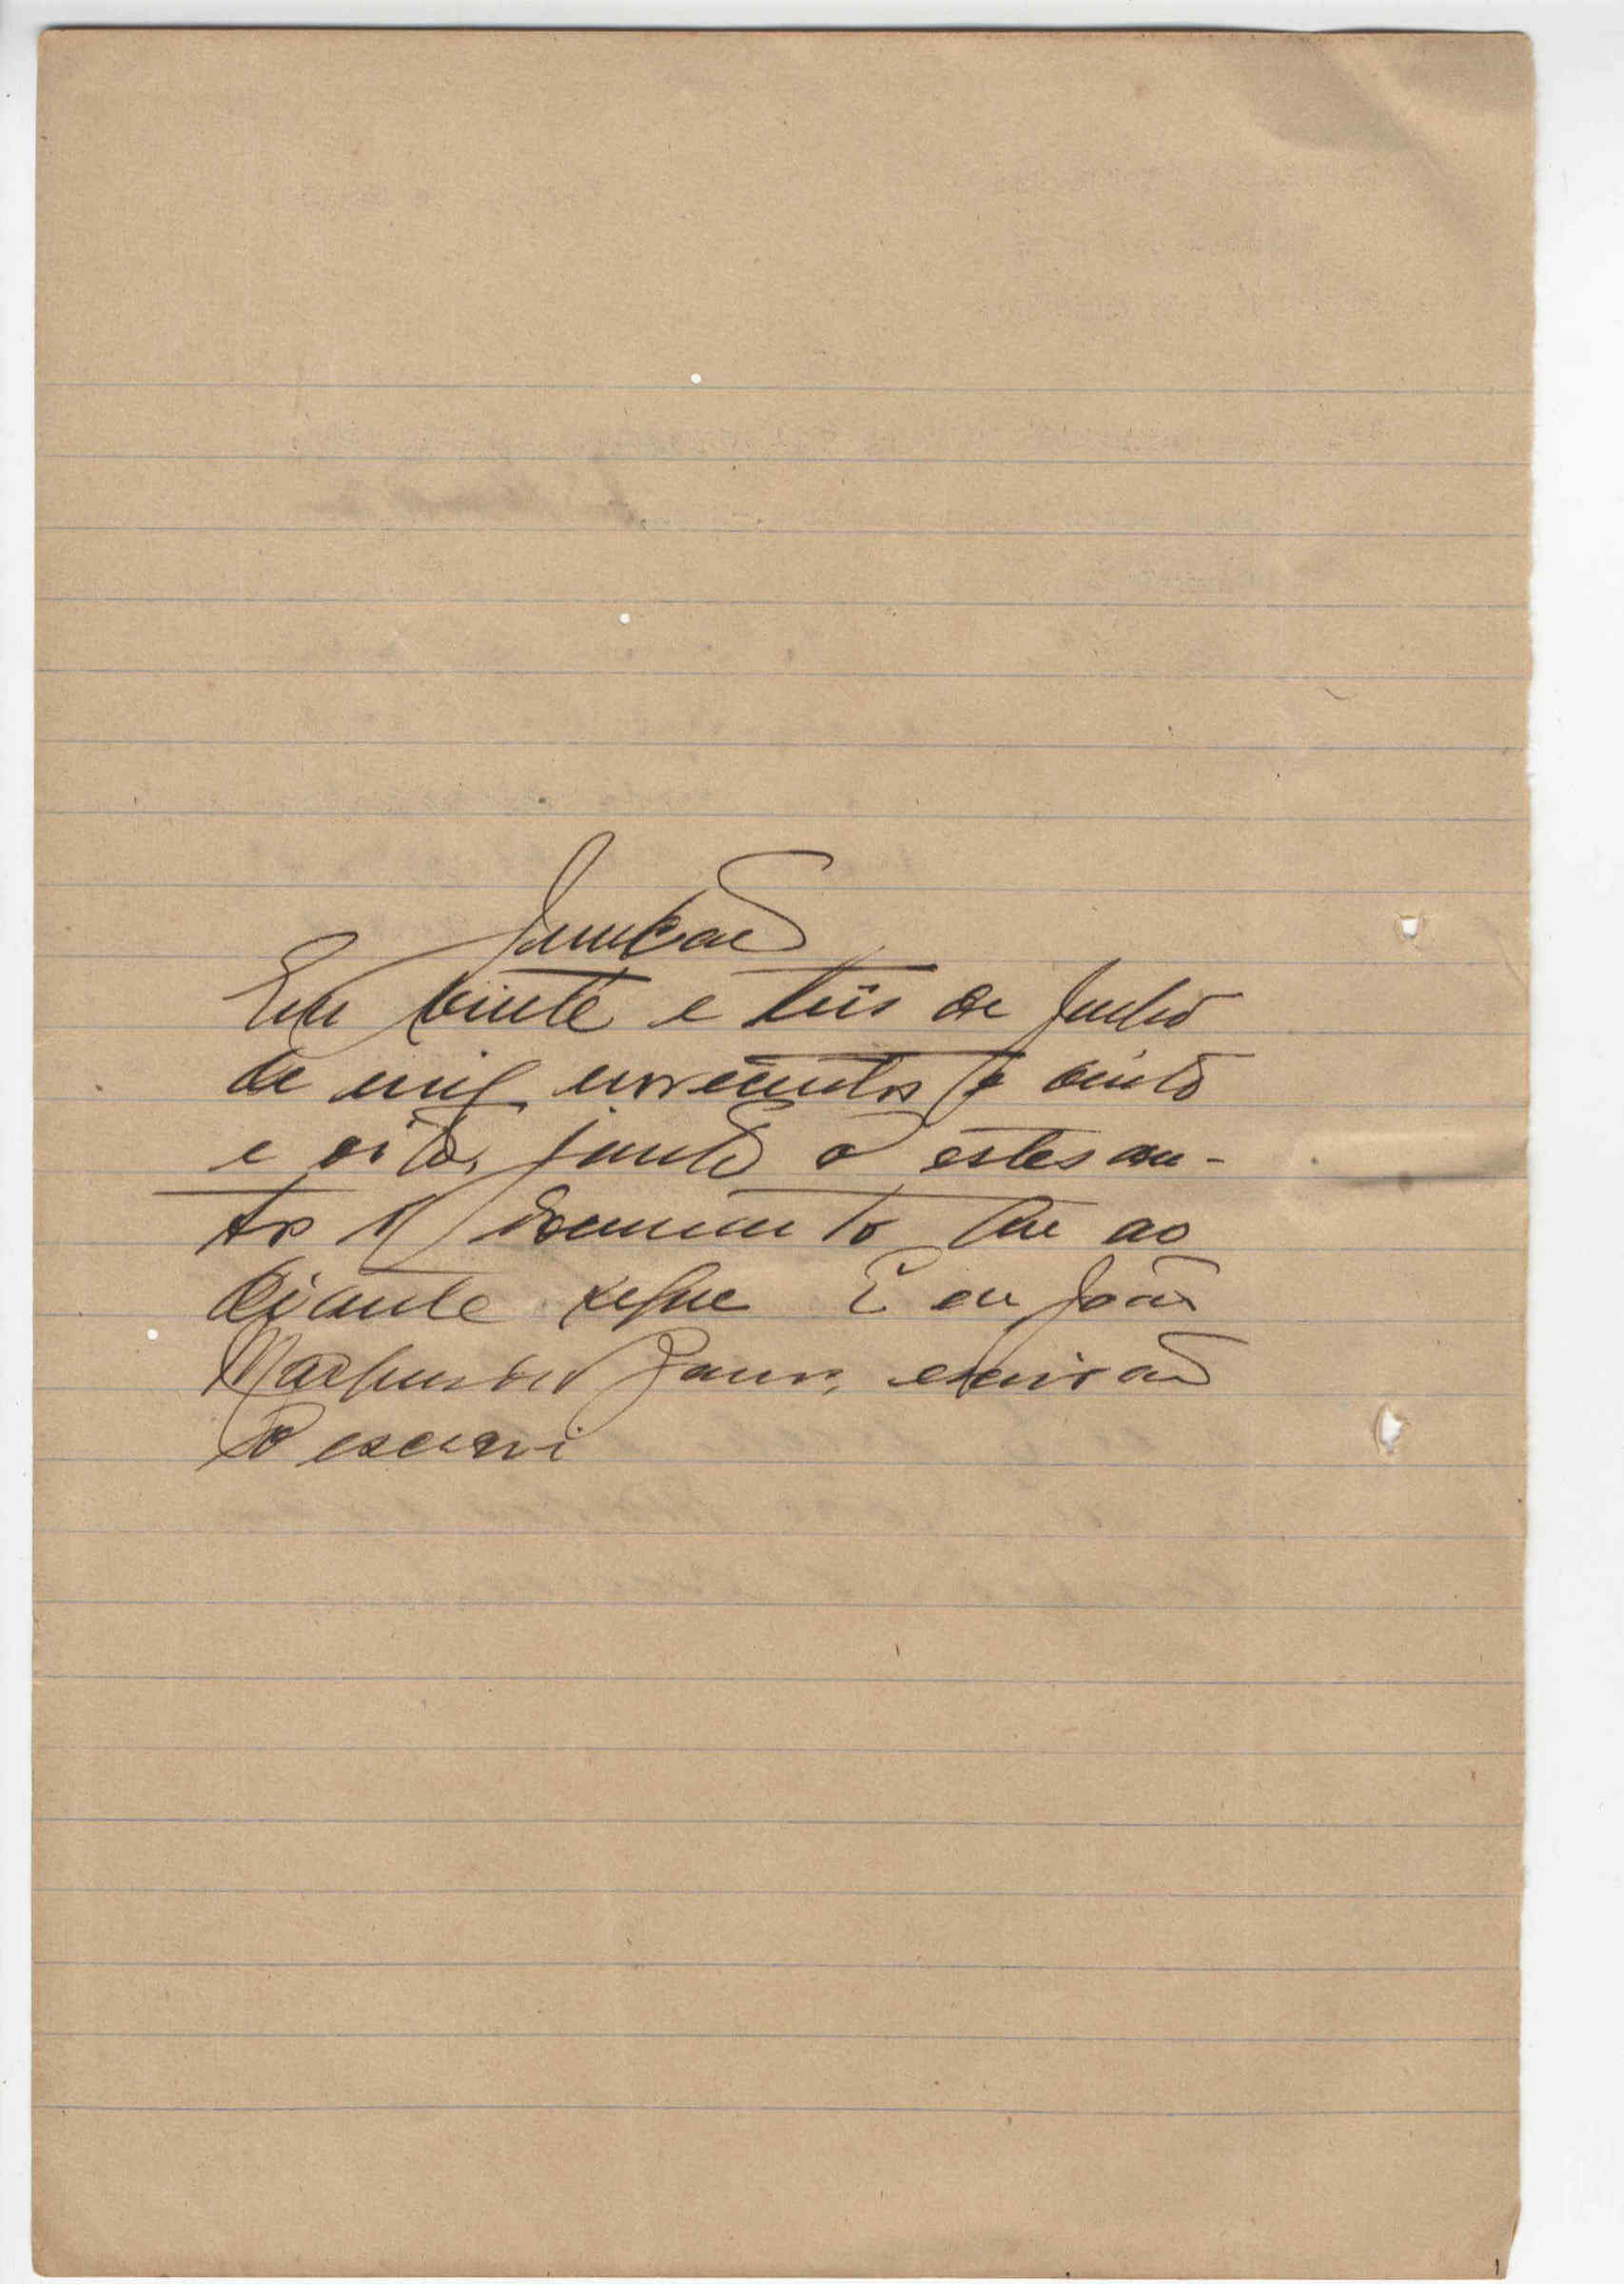 Juntada
Em vinte e tres de Junho
de mil novecentos e vinte
e oito, junto a estes au-
tos o documento que ao
diante segue E eu João
escrivão
o escrevi